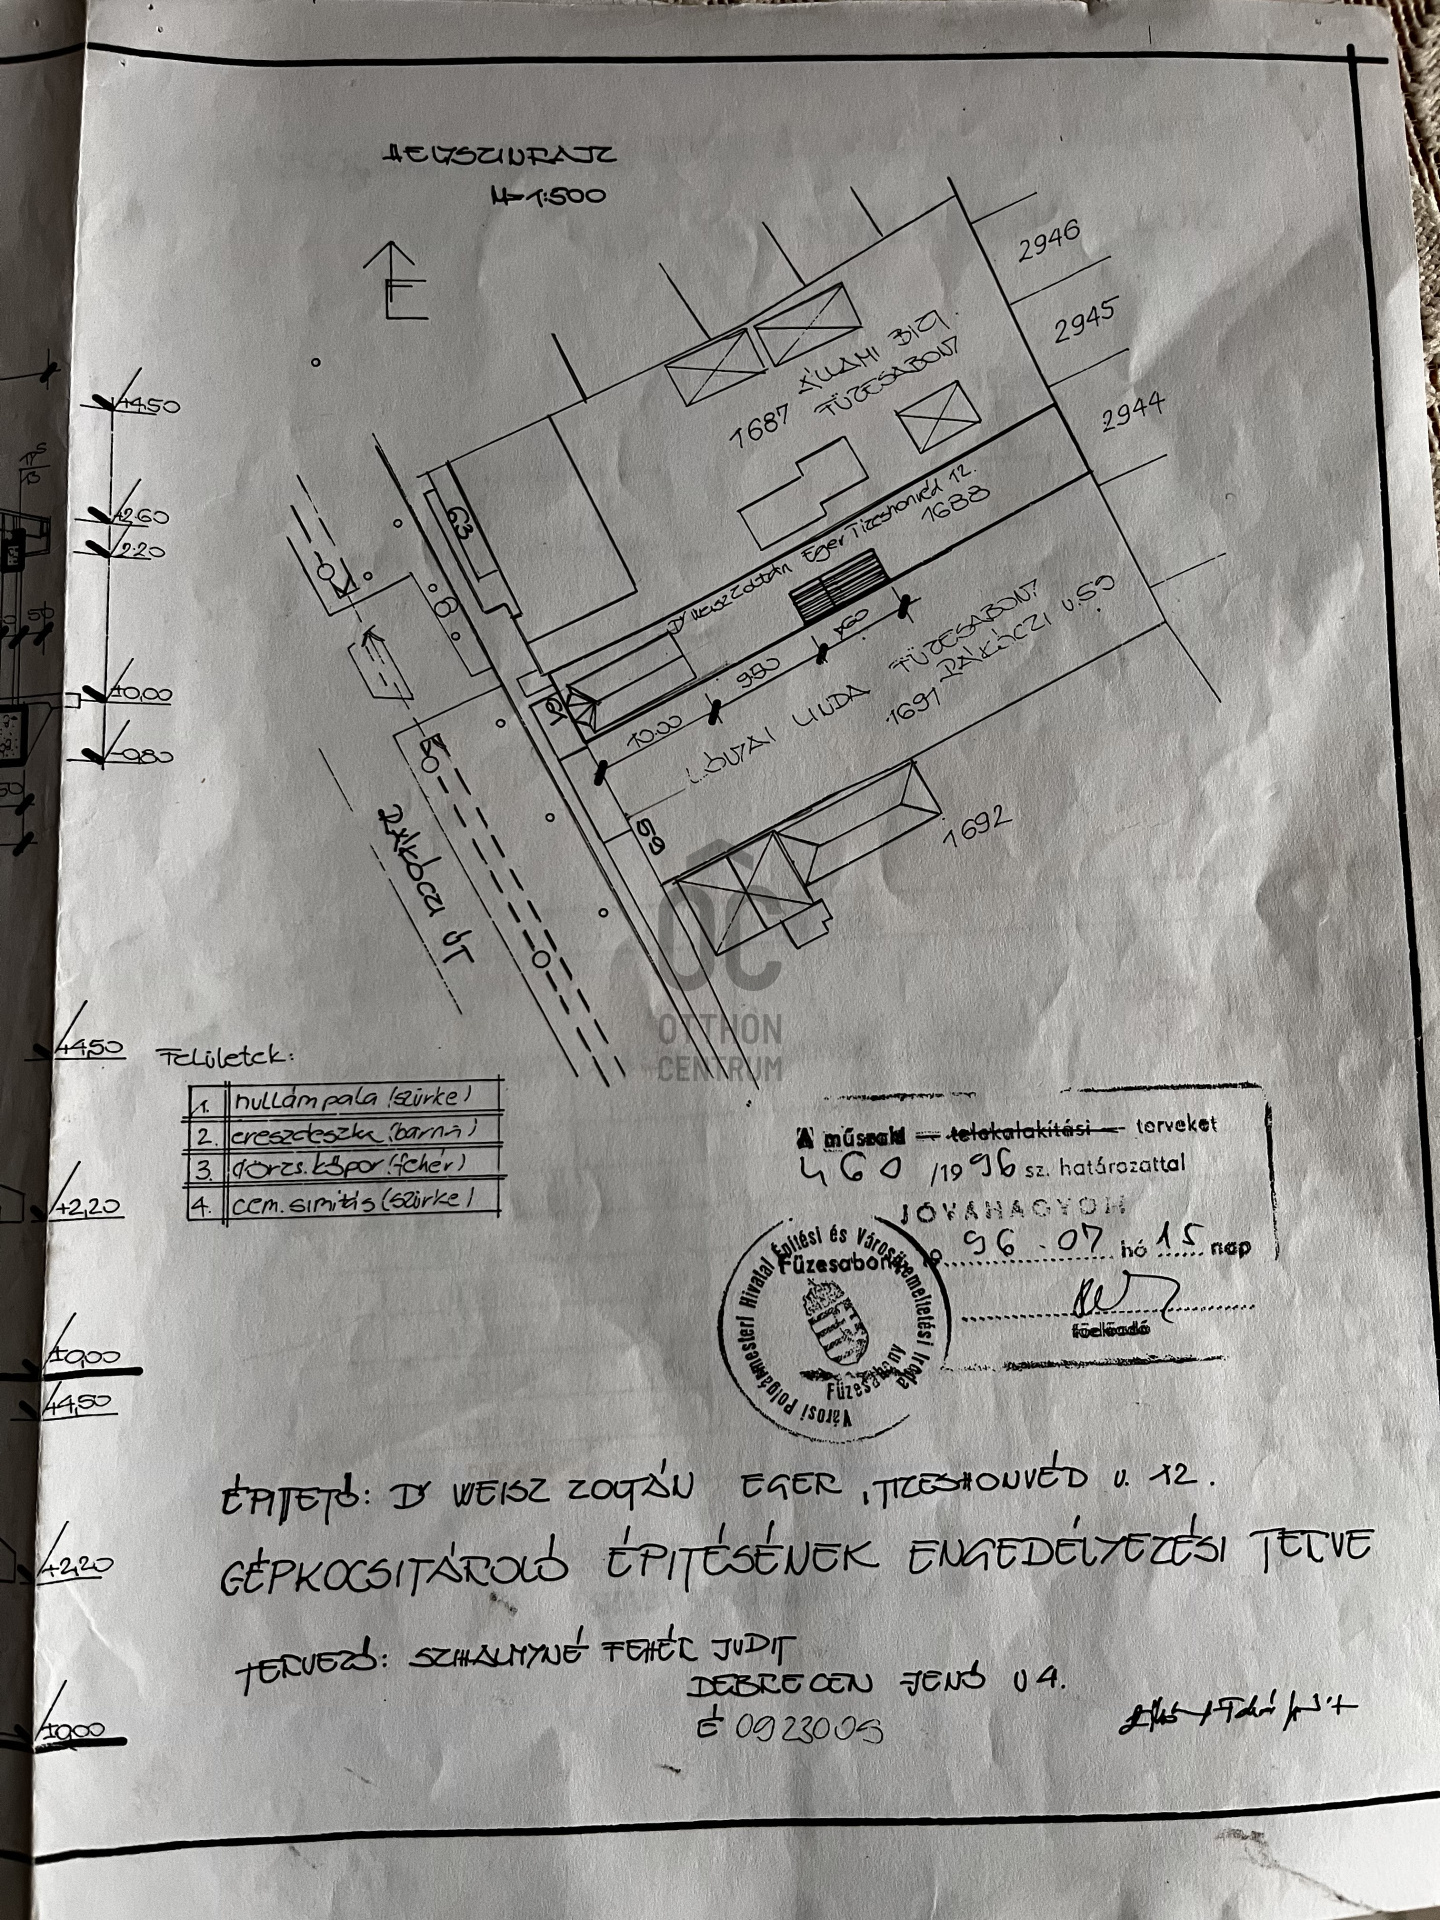 HELYSZINRAJZ
M=1:500
É
2946
2945
2944
1687 ÁLLAMI BIZT.
FÜZESABONY
Dr Weisz Zoltán Eger Tizeshonvéd 12.
1688
63
61
59
10.00
9.80
FÜZESABONY
LINDA
1691 RÁKÓCZI U.59
1692
RÁKÓCZI ÚT
+4.50
+2.60
+2.20
±0,00
-0,80
+4,50
+2,20
±0,00
+4,50
+2,20
±0,00
Felületek:
1. hullámpala (szürke)
2. ereszdeszka (barna)
3. dörzs.kőpor (fehér)
4. cem.simitás (szürke)
OC
OTTHON
CENTRUM
A műszaki — telekalakítási — terveket
460 /1996 sz. határozattal
JÓVAHAGYOM
19 96 . 07 hó 15 nap
főelőadó
Városi Polgármesteri Hivatal Építési és Városüzemeltetési Iroda
Füzesabony
Füzesabony
ÉPITTETŐ: Dr WEISZ ZOLTÁN EGER, TIZESHONVÉD U. 12.
GÉPKOCSITÁROLÓ ÉPITÉSÉNEK ENGEDÉLYEZÉSI TERVE
TERVEZŐ: SZIHALMYNÉ FEHÉR JUDIT
DEBRECEN JENŐ U 4.
É 0923005